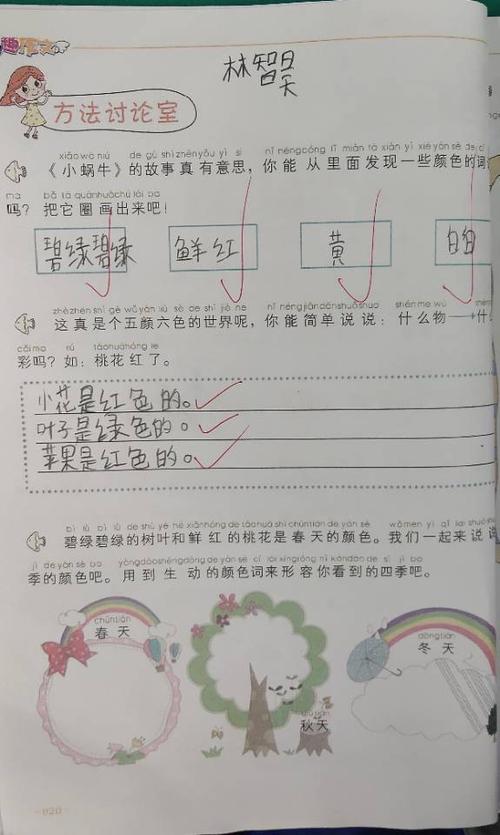 趣作文
林智昊
方法讨论室
xiǎo wō niú de gù shì zhēn yǒu yì si nǐ néng cóng lǐ miàn fā xiàn yì xiē yán sè de cí
《小蜗牛》的故事真有意思，你能从里面发现一些颜色的词
ma bǎ tā quān huà chū lái ba
吗？把它圈画出来吧！
碧绿碧绿 鲜红 黄 白白
zhè zhēn shì gè wǔ yán liù sè de shì jiè ne nǐ néng jiǎn dān shuō shuo shén me wù
这真是个五颜六色的世界呢，你能简单说说：什么物——什
cǎi ma rú táo huā hóng le
彩吗？如：桃花红了。
小花是红色的。
叶子是绿色的。
苹果是红色的。
bì lǜ bì lǜ de shù yè hé xiān hóng de táo huā shì chūn tiān de yán sè wǒ men yì qǐ lái shuō shuo
碧绿碧绿的树叶和鲜红的桃花是春天的颜色。我们一起来说说
jì de yán sè ba yòng dào shēng dòng de yán sè cí lái xíng róng nǐ kàn dào de sì jì ba
季的颜色吧。用到生动的颜色词来形容你看到的四季吧。
chūn tiān
春天
dōng tiān
冬天
qiū tiān
秋天
020